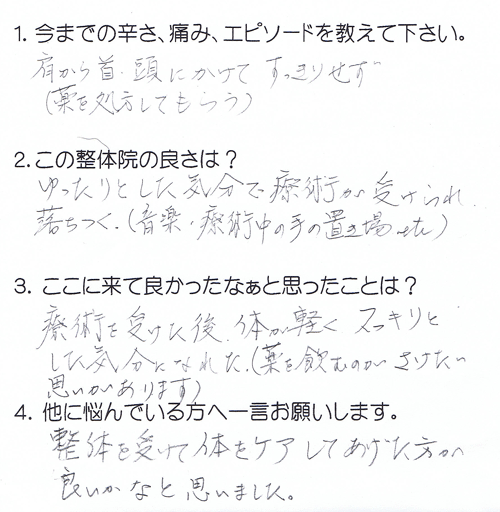 1. 今までの辛さ、痛み、エピソードを教えて下さい。
肩から首・頭にかけてすっきりせず
(薬を処方してもらう)
2. この整体院の良さは？
ゆったりとした気分で療術が受けられ
落ちつく。(音楽・療術中の手の置き場etc)
3. ここに来て良かったなぁと思ったことは？
療術を受けた後、体が軽くスッキリと
した気分になれた。(薬を飲むのがさけたい
思いがあります)
4. 他に悩んでいる方へ一言お願いします。
整体を受けて体をケアしてあげた方が
良いかなと思いました。